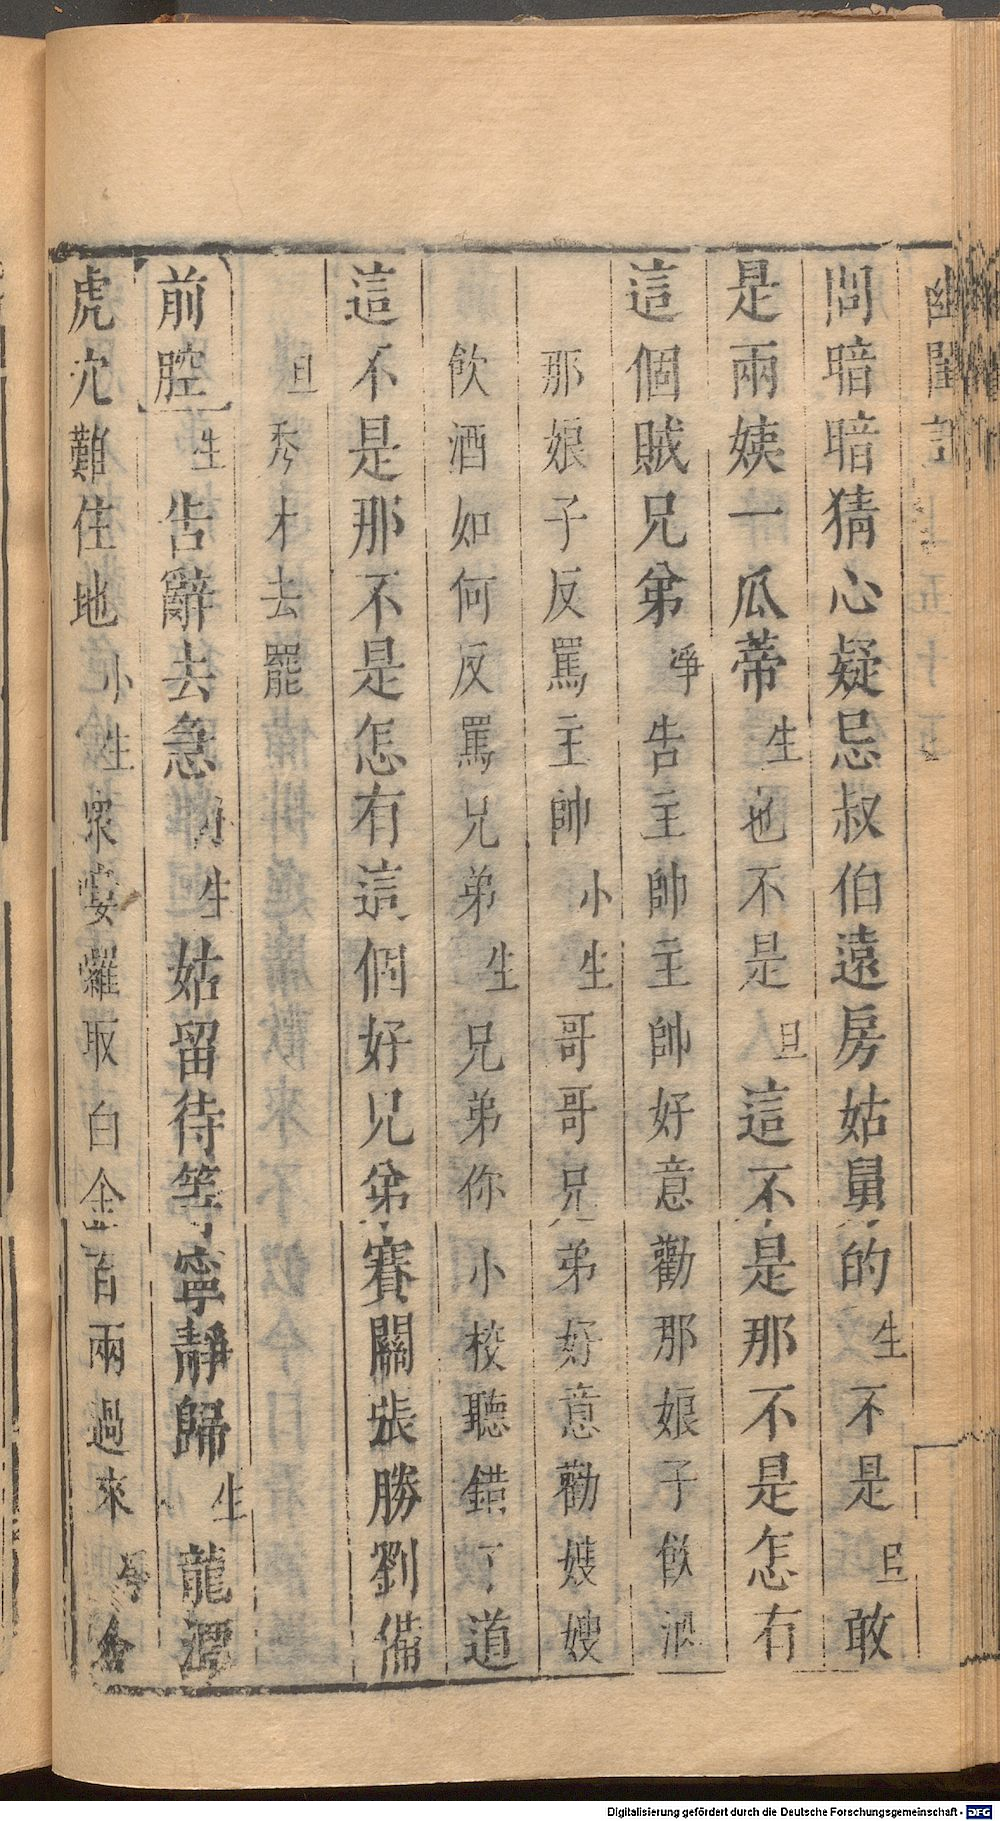 幽閨記
問暗暗猜心疑忌叔伯遠房姑舅的生不是旦敢
是兩姨一瓜蒂生也不是旦這不是那不是怎有
這個賊兄弟淨告主帥主帥好意勸那娘子飲酒
那娘子反罵主帥小生哥哥兄弟好意勸嫂嫂
飲酒如何反罵兄弟生兄弟你小校聽錯了道
這不是那不是怎有這個好兄弟賽關張勝劉備
旦秀才去罷
前腔生告辭去急小生姑留待等寧靜歸生龍潭
虎穴難住地小生眾嘍囉取白金百兩過來淨金
Digitalisierung gefördert durch die Deutsche Forschungsgemeinschaft - DFG